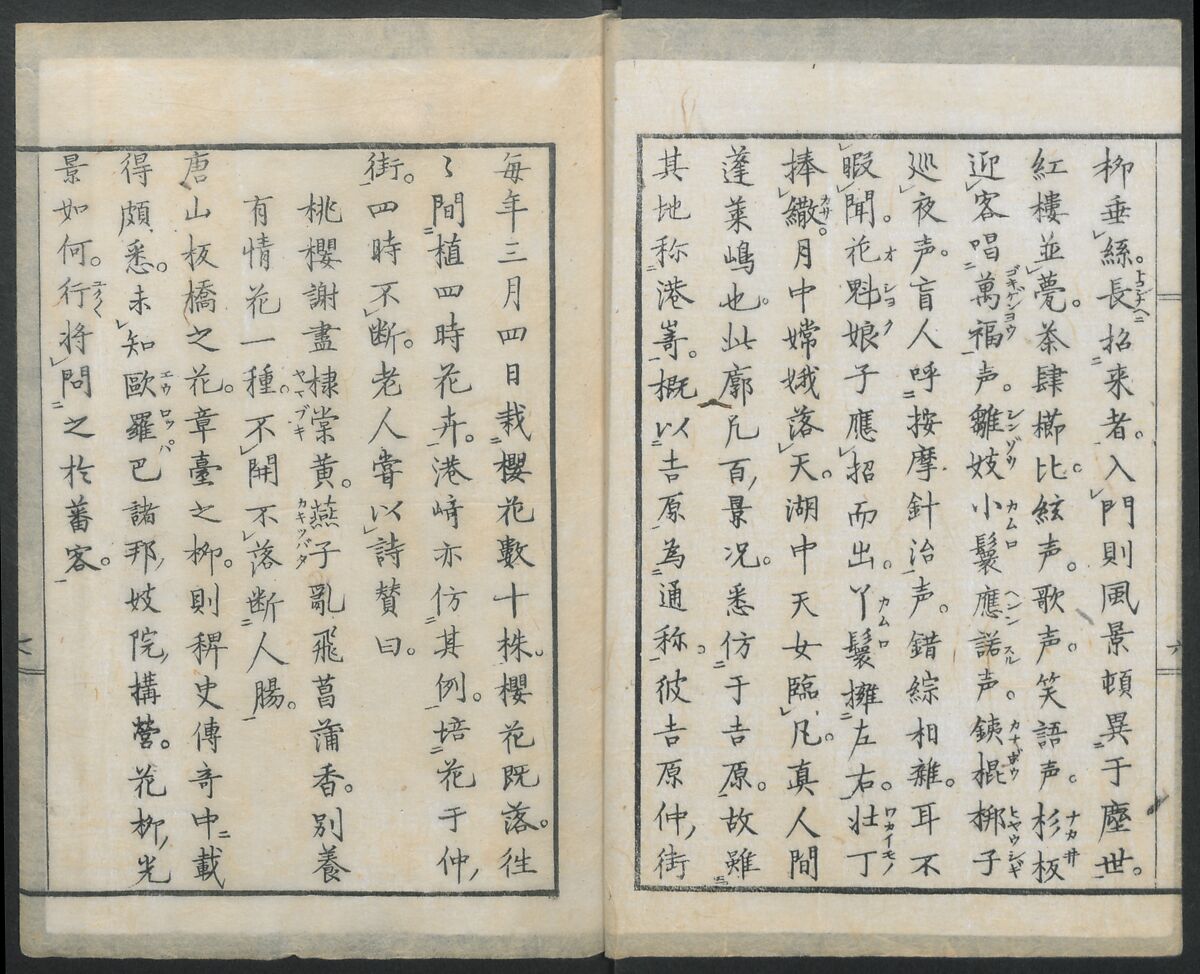 柳垂絲。長招来者。入門則風景頓異于塵世。
紅樓並甍。茶肆櫛比。絃声。歌声。笑語声。杉板
迎客唱萬福声。雛妓小鬟應諾声。銕棍梆子
巡夜声。盲人呼按摩針治声。錯綜相雜。耳不
暇聞。花魁娘子應招而出。丫鬟擁左右。壮丁
捧繖。月中嫦娥落天。湖中天女臨凡。真人間
蓬萊嶋也。此廓凡百景况。悉仿于吉原。故雖
其地称港嵜。概以吉原為通称。彼吉原仲街
每年三月四日栽櫻花數十株。櫻花既落。徃
〻間植四時花卉。港﨑亦仿其例。培花于仲
街。四時不断。老人嘗以詩賛曰。
桃櫻謝盡棣棠黄。燕子亂飛菖蒲香。別養
有情花一種。不開不落断人腸。
唐山板橋之花。章臺之柳。則稗史傳奇中載
得頗悉。未知歐羅巴諸邦妓院構營。花柳光
景如何。行将問之於蕃客。